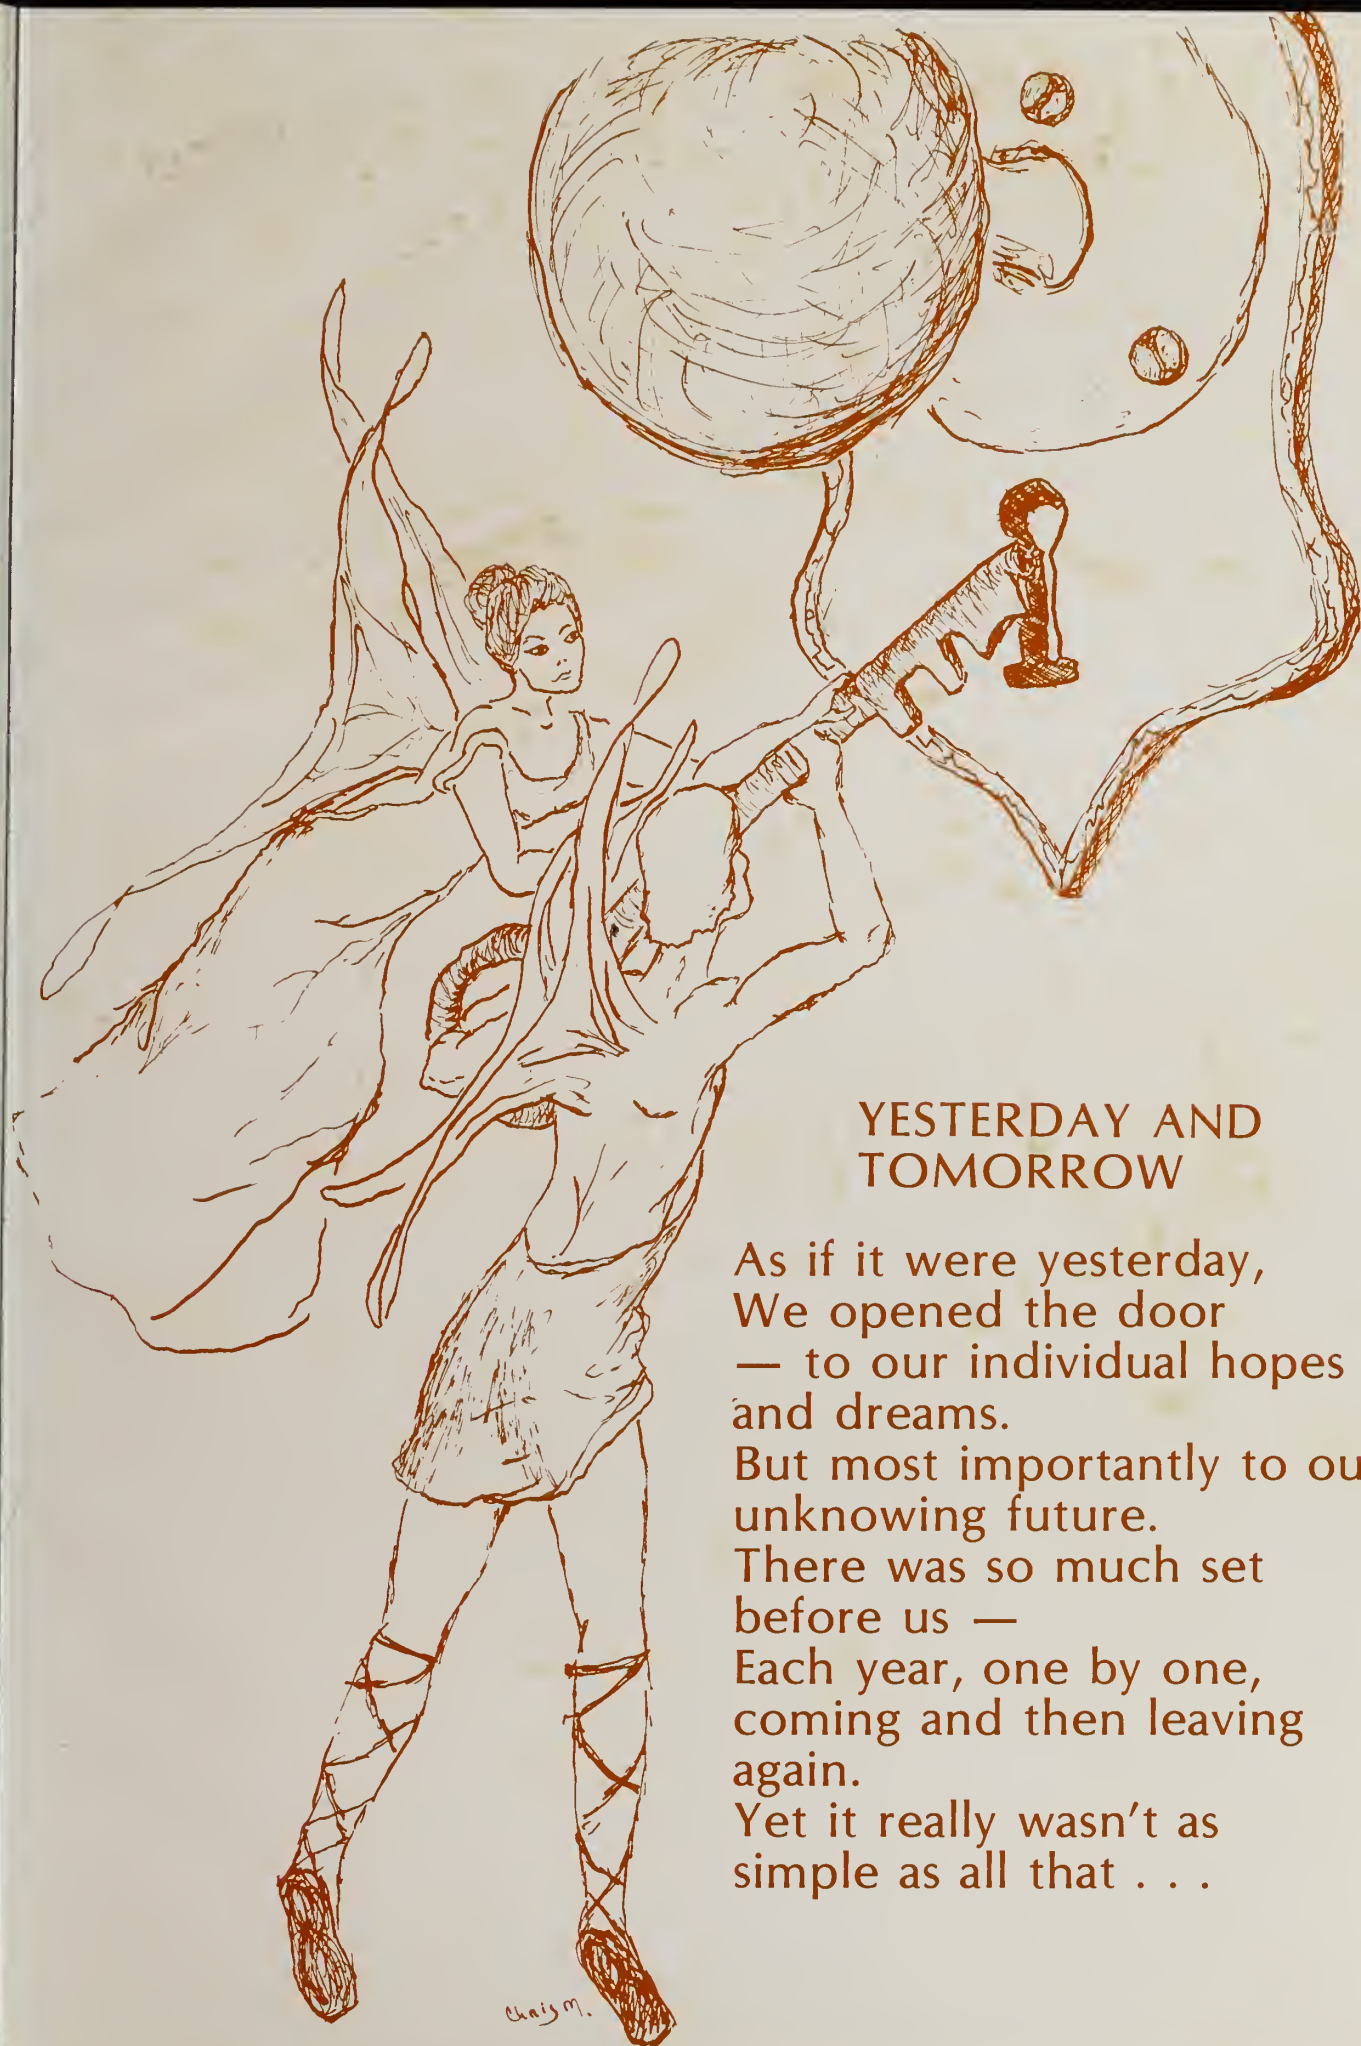 YESTERDAY AND
TOMORROW
As if it were yesterday,
We opened the door
— to our individual hopes
and dreams.
But most importantly to ou
unknowing future.
There was so much set
before us —
Each year, one by one,
coming and then leaving
again.
Yet it really wasn't as
simple as all that . . .
Chris M.